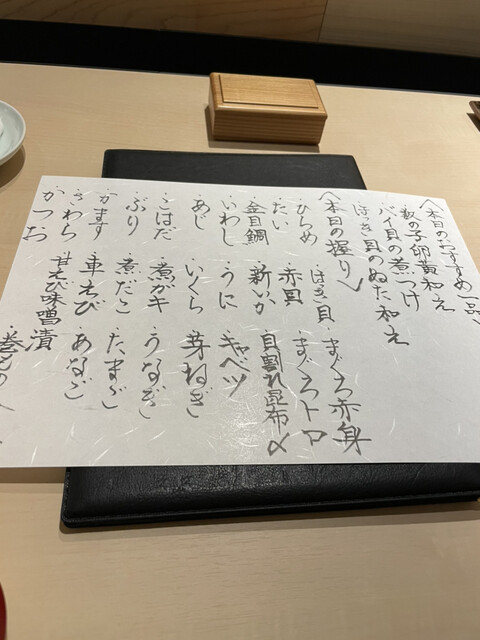 〈本日のおすすめ一品〉
・数の子卵黄和え
・バイ貝の煮つけ
・ほっき貝のぬた和え
〈本日の握り〉
・ひらめ ・ほっき貝 ・まぐろ赤身
・たい ・赤貝 ・まぐろトロ
・金目鯛 ・新いか ・貝割れ昆布〆
・いわし ・うに ・キャベツ
・あじ ・いくら ・芽ねぎ
・こはだ ・煮ガキ ・うなぎ
・ぶり ・煮だこ ・たまご
・かます ・車えび ・あなご
・さわら ・甘えび味噌漬
・かつお ・巻もの